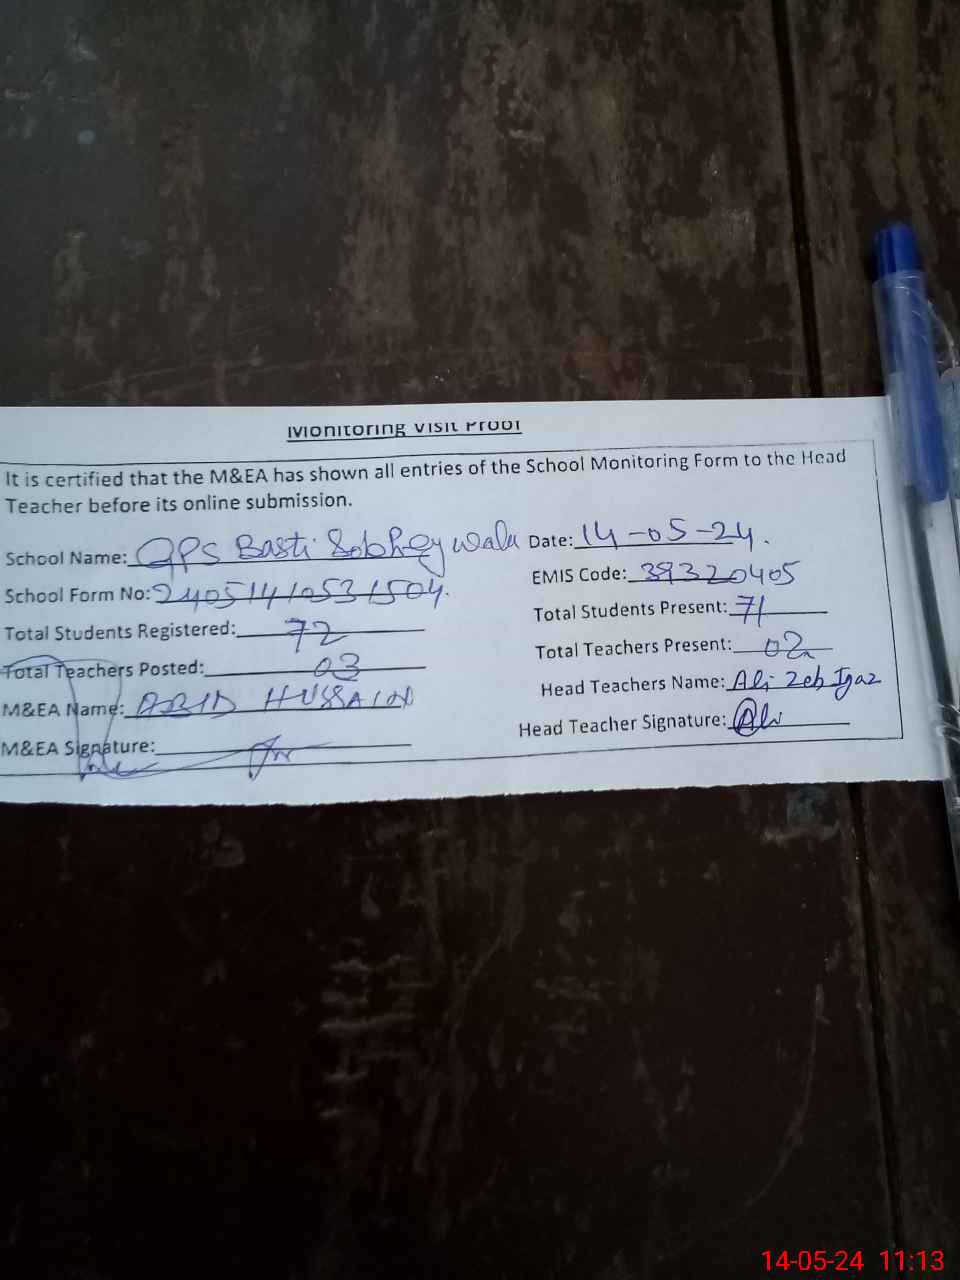 Monitoring Visit Proof
It is certified that the M&EA has shown all entries of the School Monitoring Form to the Head
Teacher before its online submission.
School Name: GPS Basti Sobhey wala Date: 14-05-24.
School Form No: 24051410531504. EMIS Code: 39320405
Total Students Registered: 72 Total Students Present: 71
Total Teachers Posted: 03 Total Teachers Present: 02
M&EA Name: ABID HUSSAIN Head Teachers Name: Ali Zeb Igaz
M&EA Signature: Head Teacher Signature: Ali
14-05-24 11:13